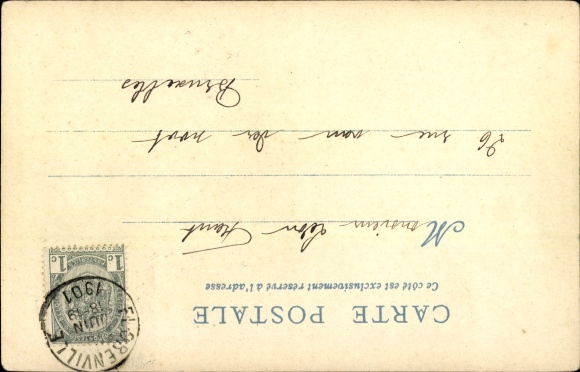 CARTE POSTALE
Ce côté est exclusivement réservé à l'adresse
Monsieur Léon
26 rue van der
Bruxelles
1c 1c
FLORENVILLE
JUIN
1901